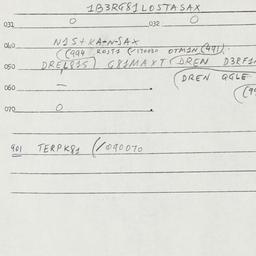 1B3RG81LOSTASAX
031 O 032 O
040 N1S+KA+N+SAX
((994 ROST1 (/170020 OTM1N (491)
050 DREL81S) G81MAXT (DREN D3RF1
(DREN GGLE
060 —
(9
070 O
901 TERPK81 (/090070